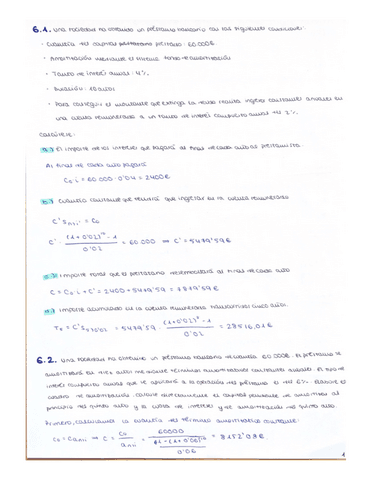 6.1. Una sociedad ha obtenido un préstamo bancario con las siguientes condiciones:
· Cuantía del capital prestado: 60.000€.
· Amortización mediante el sistema fondo de amortización
· Tanto de interés anual: 4%.
· Duración: 10 años
· Para conseguir el montante que extinga la deuda realiza ingresos constantes anuales en
una cuenta remunerada a un tanto de interés compuesto anual del 2%.
Calcúlese:
a.) El importe de los intereses que pagará al final de cada año al prestamista.
Al final de cada año pagará
C₀·i = 60.000·0'04 = 2400€
b.) Cuantía constante que tendrá que ingresar en la cuenta remunerada
C' S n¬i' = C₀
C' · (1+0'02)¹⁰ - 1 / 0'02 = 60.000 ⇒ C' = 5479'59€
c.) Importe total que el prestatario desembolsará al final de cada año
C = C₀·i + C' = 2400 + 5479'59 = 7879'59€
d.) Importe acumulado en la cuenta remunerada transcurridos cinco años.
= 5479'59 · (1+0'02)⁵ - 1 / 0'02 = 28516,01€
6.2. Una sociedad ha obtenido un préstamo bancario de cuantía 60.000€. El préstamo se
amortizará en diez años mediante términos amortizativos constantes anuales. El tipo de
interés compuesto anual que se aplicará a la operación del préstamo es del 6%. Elabore el
cuadro de amortización. Calcule directamente el capital pendiente de amortizar al
principio del quinto año y la cuota de interés y de amortización del quinto año.
Primero, calculamos la cuantía del término amortizativo constante:
C₀ = C a n¬i ⇒ C = C₀ / a n¬i = 60000 / 1 - (1+0'06)⁻¹⁰ / 0'06 = 8152'08€
1